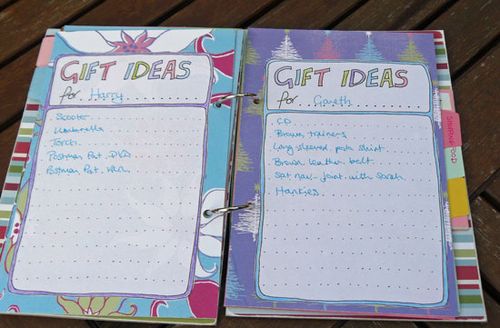 GIFT IDEAS
for Harry
Scooter
Umbrella
Torch
Postman Pat DVD
Postman Pat van
GIFT IDEAS
for Gareth
CD
Brown trainers
Long sleeved shirt
Brown leather belt
Sat nav - joint with Sarah
Hankies
FOOD